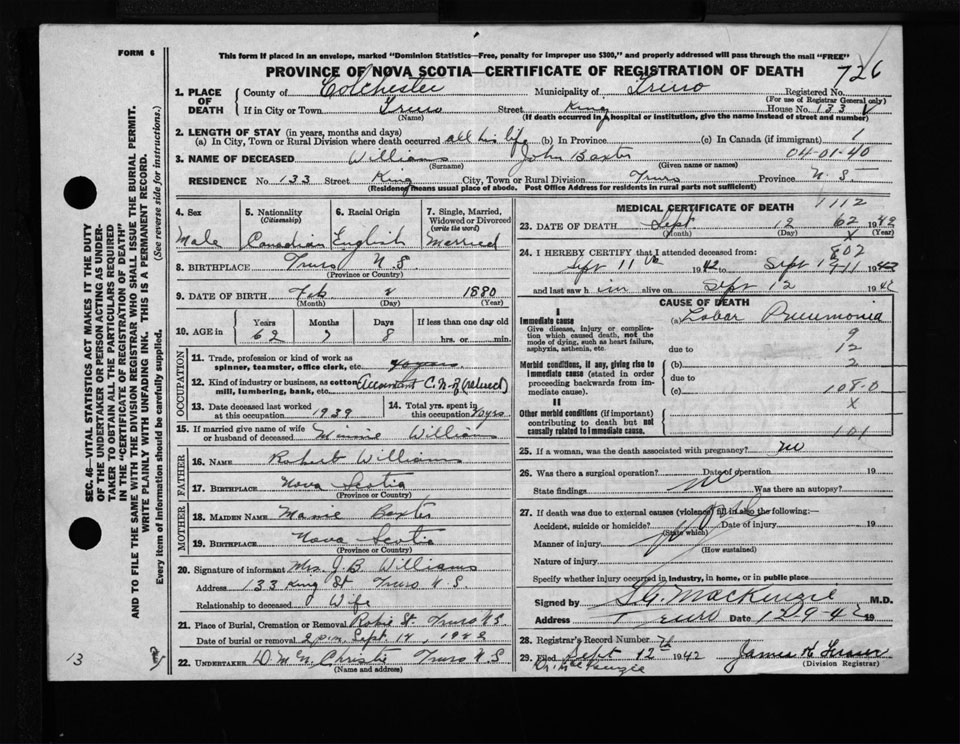 FORM 6
This form if placed in an envelope, marked "Dominion Statistics—Free, penalty for improper use $300," and properly addressed will pass through the mail "FREE"
PROVINCE OF NOVA SCOTIA—CERTIFICATE OF REGISTRATION OF DEATH
726
1. PLACE OF DEATH
County of Colchester Municipality of Truro Registered No.
(For use of Registrar General only)
If in City or Town Truro Street King House No. 133
(Name) (If death occurred in a hospital or institution, give the name instead of street and number)
2. LENGTH OF STAY (in years, months and days)
(a) In City, Town or Rural Division where death occurred all his life (b) In Province (c) In Canada (if immigrant) 1
3. NAME OF DECEASED Williams John Baxter 04-01-40
(Surname) (Given name or names)
RESIDENCE No. 133 Street King City, Town or Rural Division Truro Province N.S.
(Residence means usual place of abode. Post Office Address for residents in rural parts not sufficient)
4. Sex
Male
5. Nationality (Citizenship)
Canadian
6. Racial Origin
English
7. Single, Married, Widowed or Divorced (write the word)
Married
8. BIRTHPLACE Truro N.S.
(Province or Country)
9. DATE OF BIRTH Feb 1880
(Month) (Day) (Year)
10. AGE in Years Months Days If less than one day old
62 7 8 hrs. or min.
OCCUPATION
11. Trade, profession or kind of work as spinner, teamster, office clerk, etc.
12. Kind of industry or business, as cotton mill, lumbering, bank, etc. Accountant C.N.R. (retired)
13. Date deceased last worked at this occupation 1939
14. Total yrs. spent in this occupation
15. If married give name of wife or husband of deceased Minnie Williams
FATHER
16. NAME Robert Williams
17. BIRTHPLACE Nova Scotia
(Province or Country)
MOTHER
18. MAIDEN NAME Baxter
19. BIRTHPLACE Nova Scotia
(Province or Country)
20. Signature of informant Mrs. J. B. Williams
Address 133 King St Truro N.S.
Relationship to deceased Wife
21. Place of Burial, Cremation or Removal Robie St. Truro N.S.
Date of burial or removal 2 p.m. Sept 14, 1942
22. UNDERTAKER Christie Truro N.S.
(Name and address)
MEDICAL CERTIFICATE OF DEATH 1112
23. DATE OF DEATH Sept 12 62 1942
(Month) (Day) X (Year)
24. I HEREBY CERTIFY that I attended deceased from: 802
Sept 11th 1942 to Sept 12 911 1942
and last saw him alive on Sept 12 1942
CAUSE OF DEATH
I
Immediate cause (a) Lobar Pneumonia
Give disease, injury or complication which caused death, not the mode of dying, such as heart failure, asphyxia, asthenia, etc.
9
due to 12
Morbid conditions, if any, giving rise to immediate cause (stated in order proceeding backwards from immediate cause).
(b) 2
due to
(c) 108-0
II X
Other morbid conditions (if important) contributing to death but not causally related to immediate cause.
101
25. If a woman, was the death associated with pregnancy? no
26. Was there a surgical operation? Date of operation 19
State findings no Was there an autopsy?
27. If death was due to external causes (violence) fill in also the following:—
Accident, suicide or homicide? Date of injury 19
(State which)
Manner of injury
(How sustained)
Nature of injury
Specify whether injury occurred in industry, in home, or in public place
Signed by MacKenzie M.D.
Address Truro Date 12-9-42 19
28. Registrar's Record Number 76
29. Filed Sept 12th 1942
(Division Registrar)
Dr. MacKenzie
SEC. 46—VITAL STATISTICS ACT MAKES IT THE DUTY OF THE UNDERTAKER OR PERSON ACTING AS UNDERTAKER TO OBTAIN ALL THE PARTICULARS REQUIRED IN THE "CERTIFICATE OF REGISTRATION OF DEATH"
AND TO FILE THE SAME WITH THE DIVISION REGISTRAR WHO SHALL ISSUE THE BURIAL PERMIT.
WRITE PLAINLY WITH UNFADING INK. THIS IS A PERMANENT RECORD.
Every item of information should be carefully supplied. (See reverse side for instructions.)
13